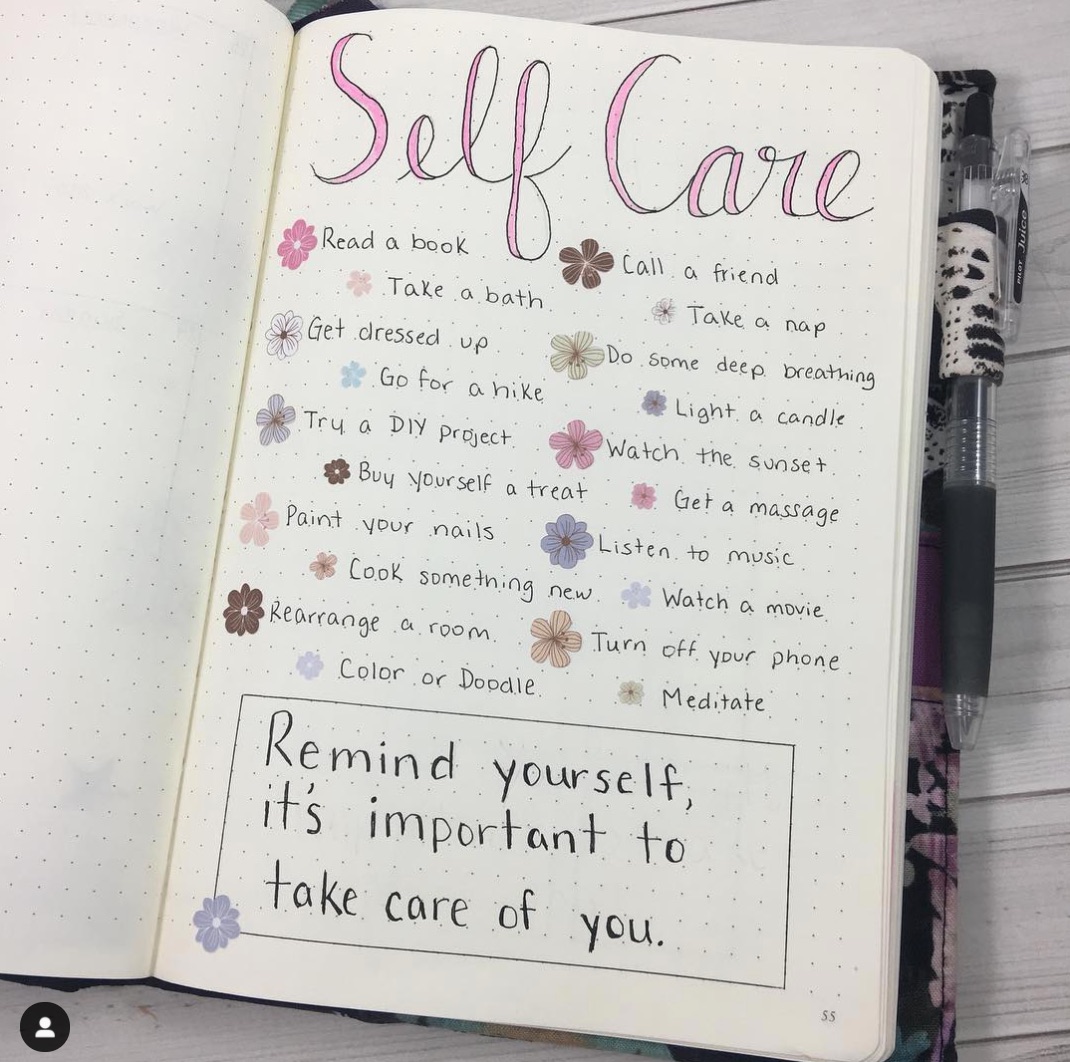 Self Care
Read a book
Take a bath
Get dressed up
Go for a hike
Try a DIY project
Buy yourself a treat
Paint your nails
Cook something new
Rearrange a room
Color or Doodle
Call a friend
Take a nap
Do some deep breathing
Light a candle
Watch the sunset
Get a massage
Listen to music
Watch a movie
Turn off your phone
Meditate
Remind yourself,
it's important to
take care of you.
55
PILOT Juice